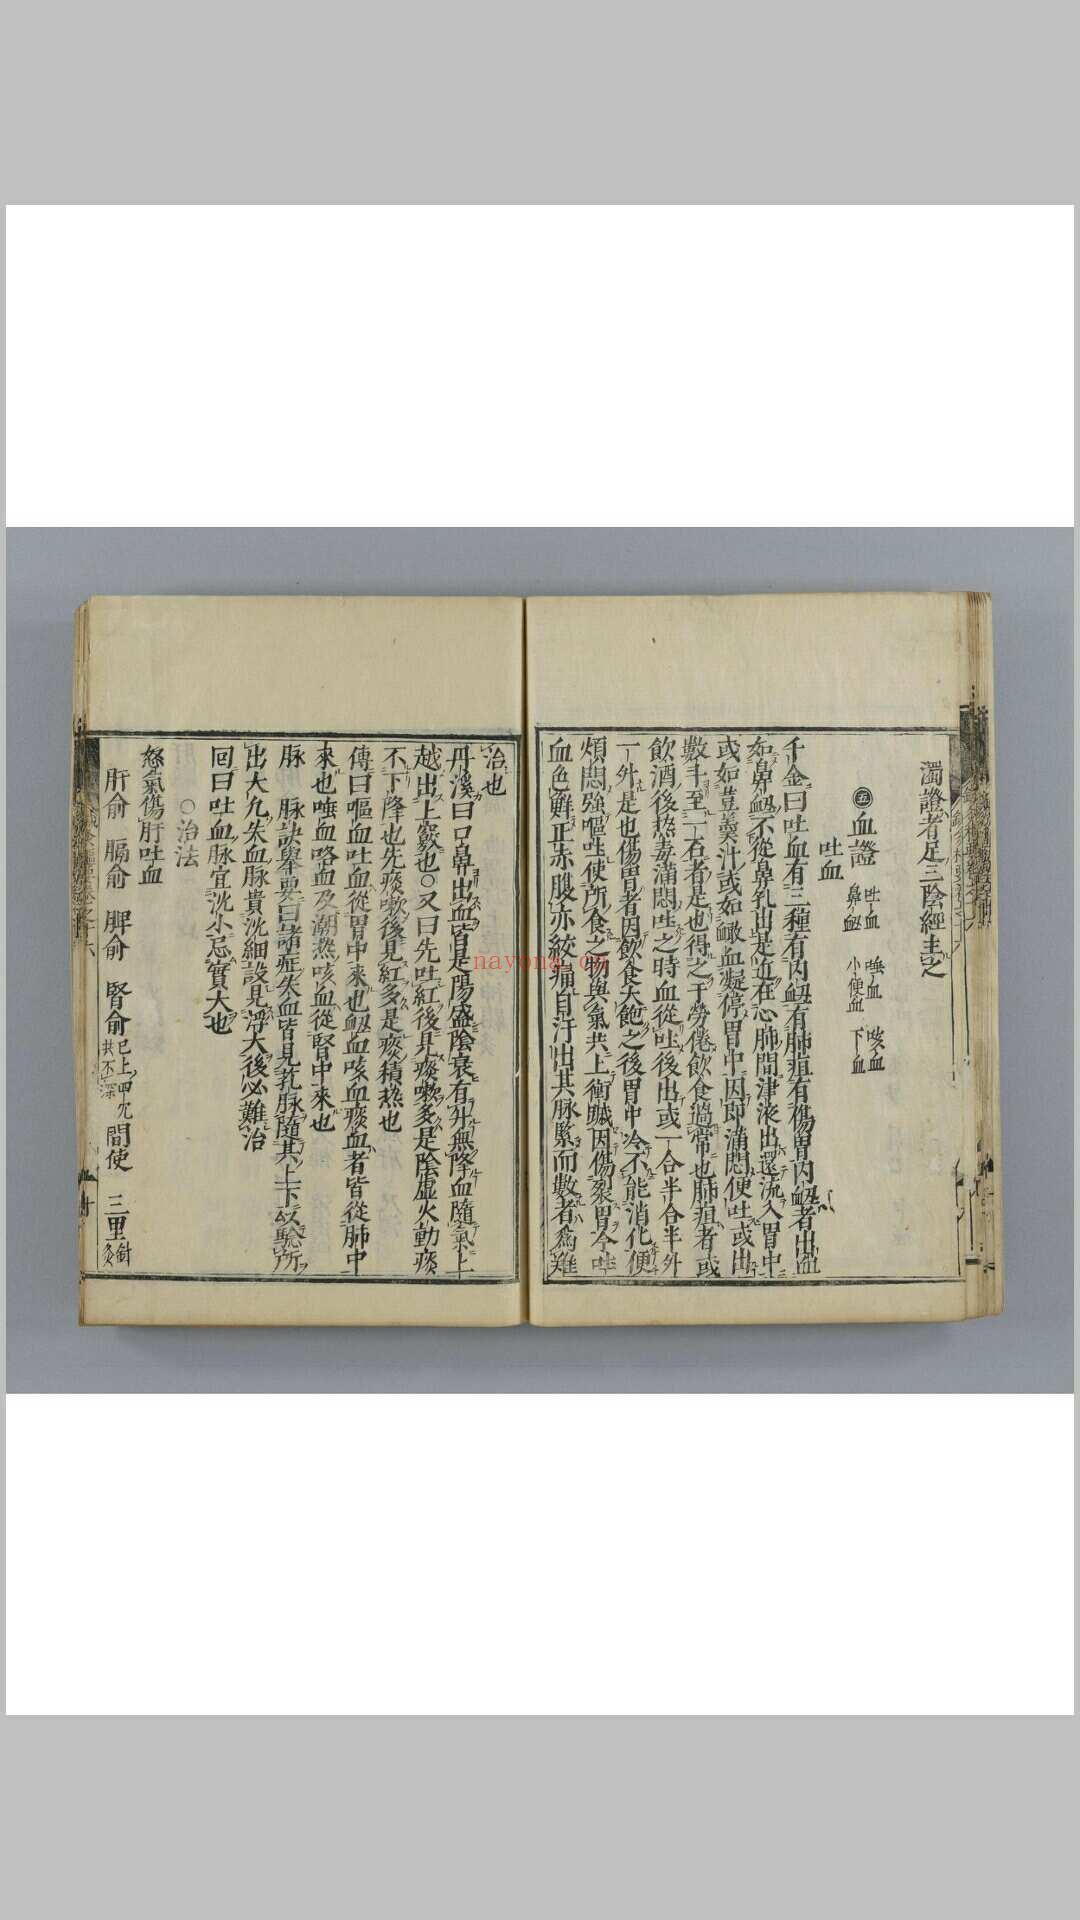 濁證者足三陰經主之
㊄血證 吐血 唾血 咳血
鼻衂 小便血 下血
吐血
千金曰吐血有三種有内衂有肺疽有傷胃内衂者出血
如鼻衂不從鼻孔出是近在心肺間津液出還流入胃中
或如豆羹汁或如𧖻血凝停胃中因即滿悶便吐或出
數斗至一石者是也得之于勞倦飲食過常也肺疽者或
飲酒後热毒滿悶吐之時血從吐後出或一合半合半外
一外是也傷胃者因飲食大飽之後胃中冷不能消化便
煩悶強嘔吐使所食之物與氣共上衝䠞因傷裂胃令吐
血色鮮正赤腹亦絞痛自汗出其脉緊而數者爲難
治也
丹溪曰口鼻出血皆是陽盛陰衰有升無降血隨氣上
越出上竅也○又曰先吐紅後見痰嗽多是陰虚火動痰
不下降也先痰嗽後見紅多是痰積热也
傳曰嘔血吐血從胃中來也衂血咳血痰血者皆從肺中
來也唾血咯血及潮热咳血從腎中來也
脉 脉訣舉要曰諸症失血皆見芤脉隨其上下以驗所
出大凡失血脉貴沈細設見浮大後必難治
回曰吐血脉宜沈小忌實大也
○治法
怒氣傷肝吐血
肝俞 膈俞 脾俞 腎俞已上四穴共不深 間使 三里針灸
nayona.cn